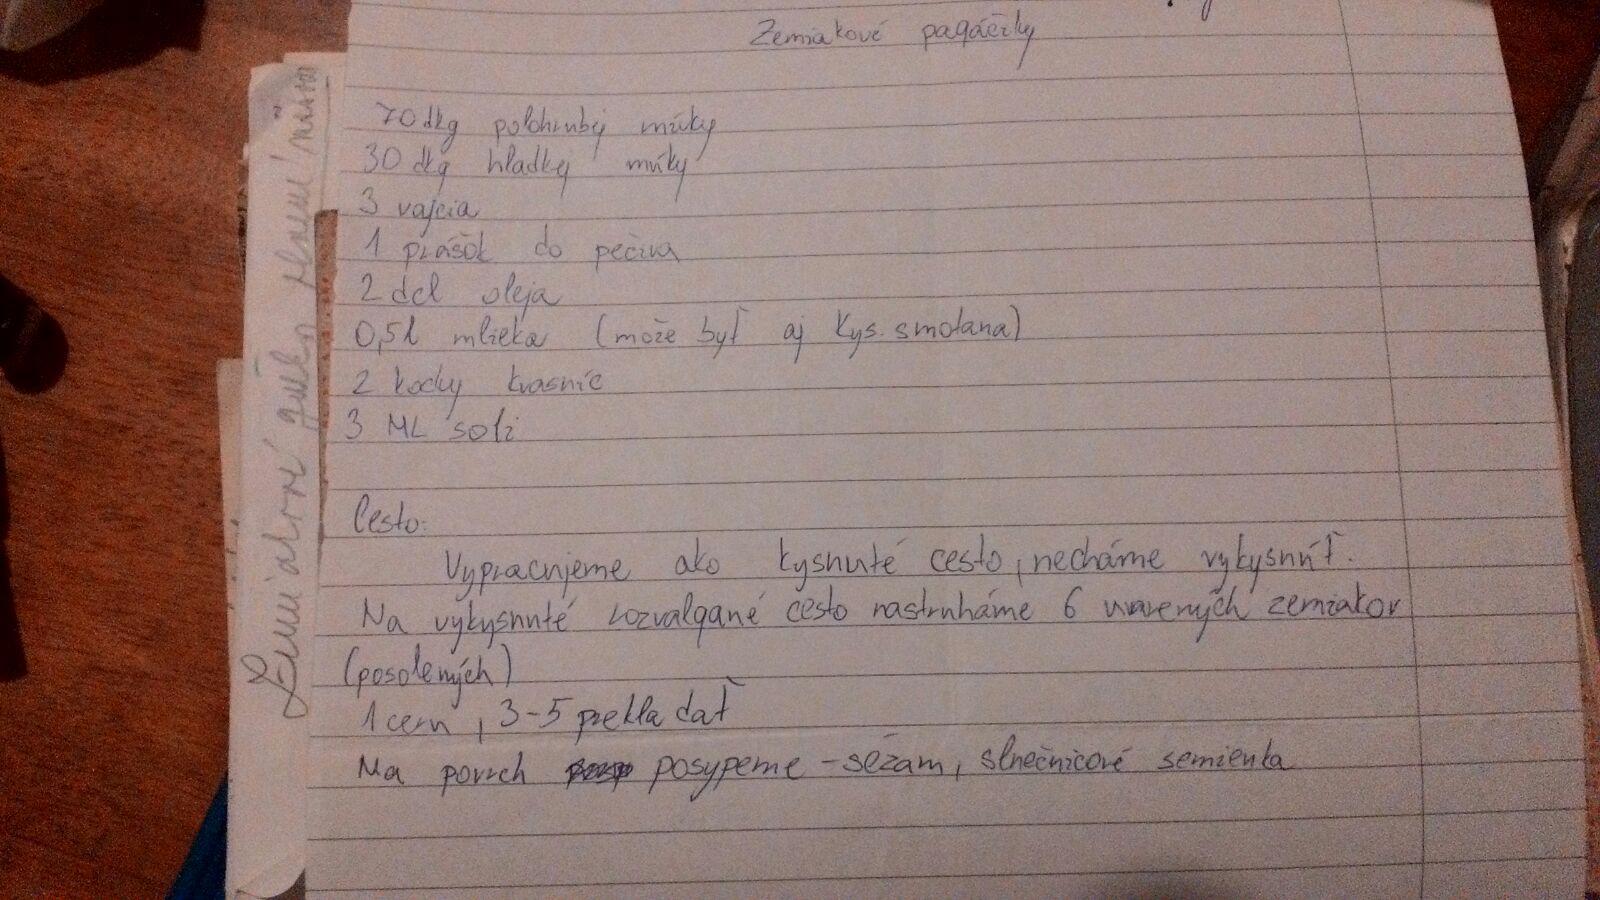 Zemiakové pagáčiky
70 dkg polohrubej múky
30 dkg hladkej múky
3 vajcia
1 prášok do pečiva
2 dcl oleja
0,5 l mlieka (može byť aj kys. smotana)
2 kocky kvasníc
3 ML soli
Cesto:
Vypracujeme ako kysnuté cesto, necháme vykysnúť.
Na vykysnuté rozvalgané cesto nastrúháme 6 uvarených zemiakov
(posolených)
1 cm, 3-5 prekladať
Na povrch posypeme - sézam, slnečnicové semienka